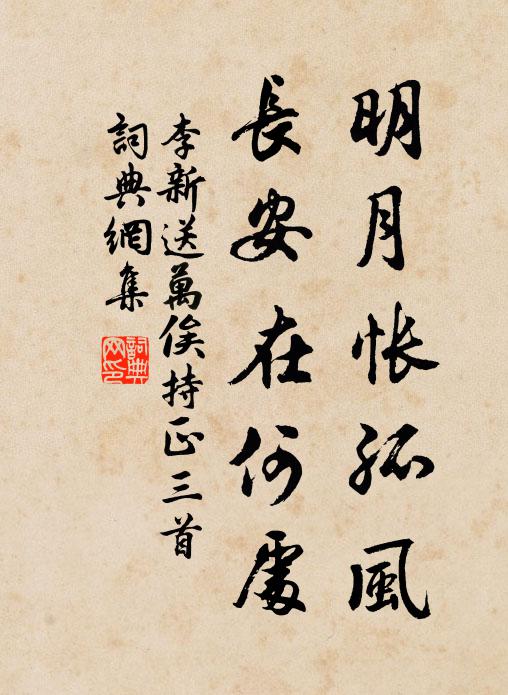 明月悵孤風
長安在何處
李新送萬俟持正三首
詞典網集
詞典網印